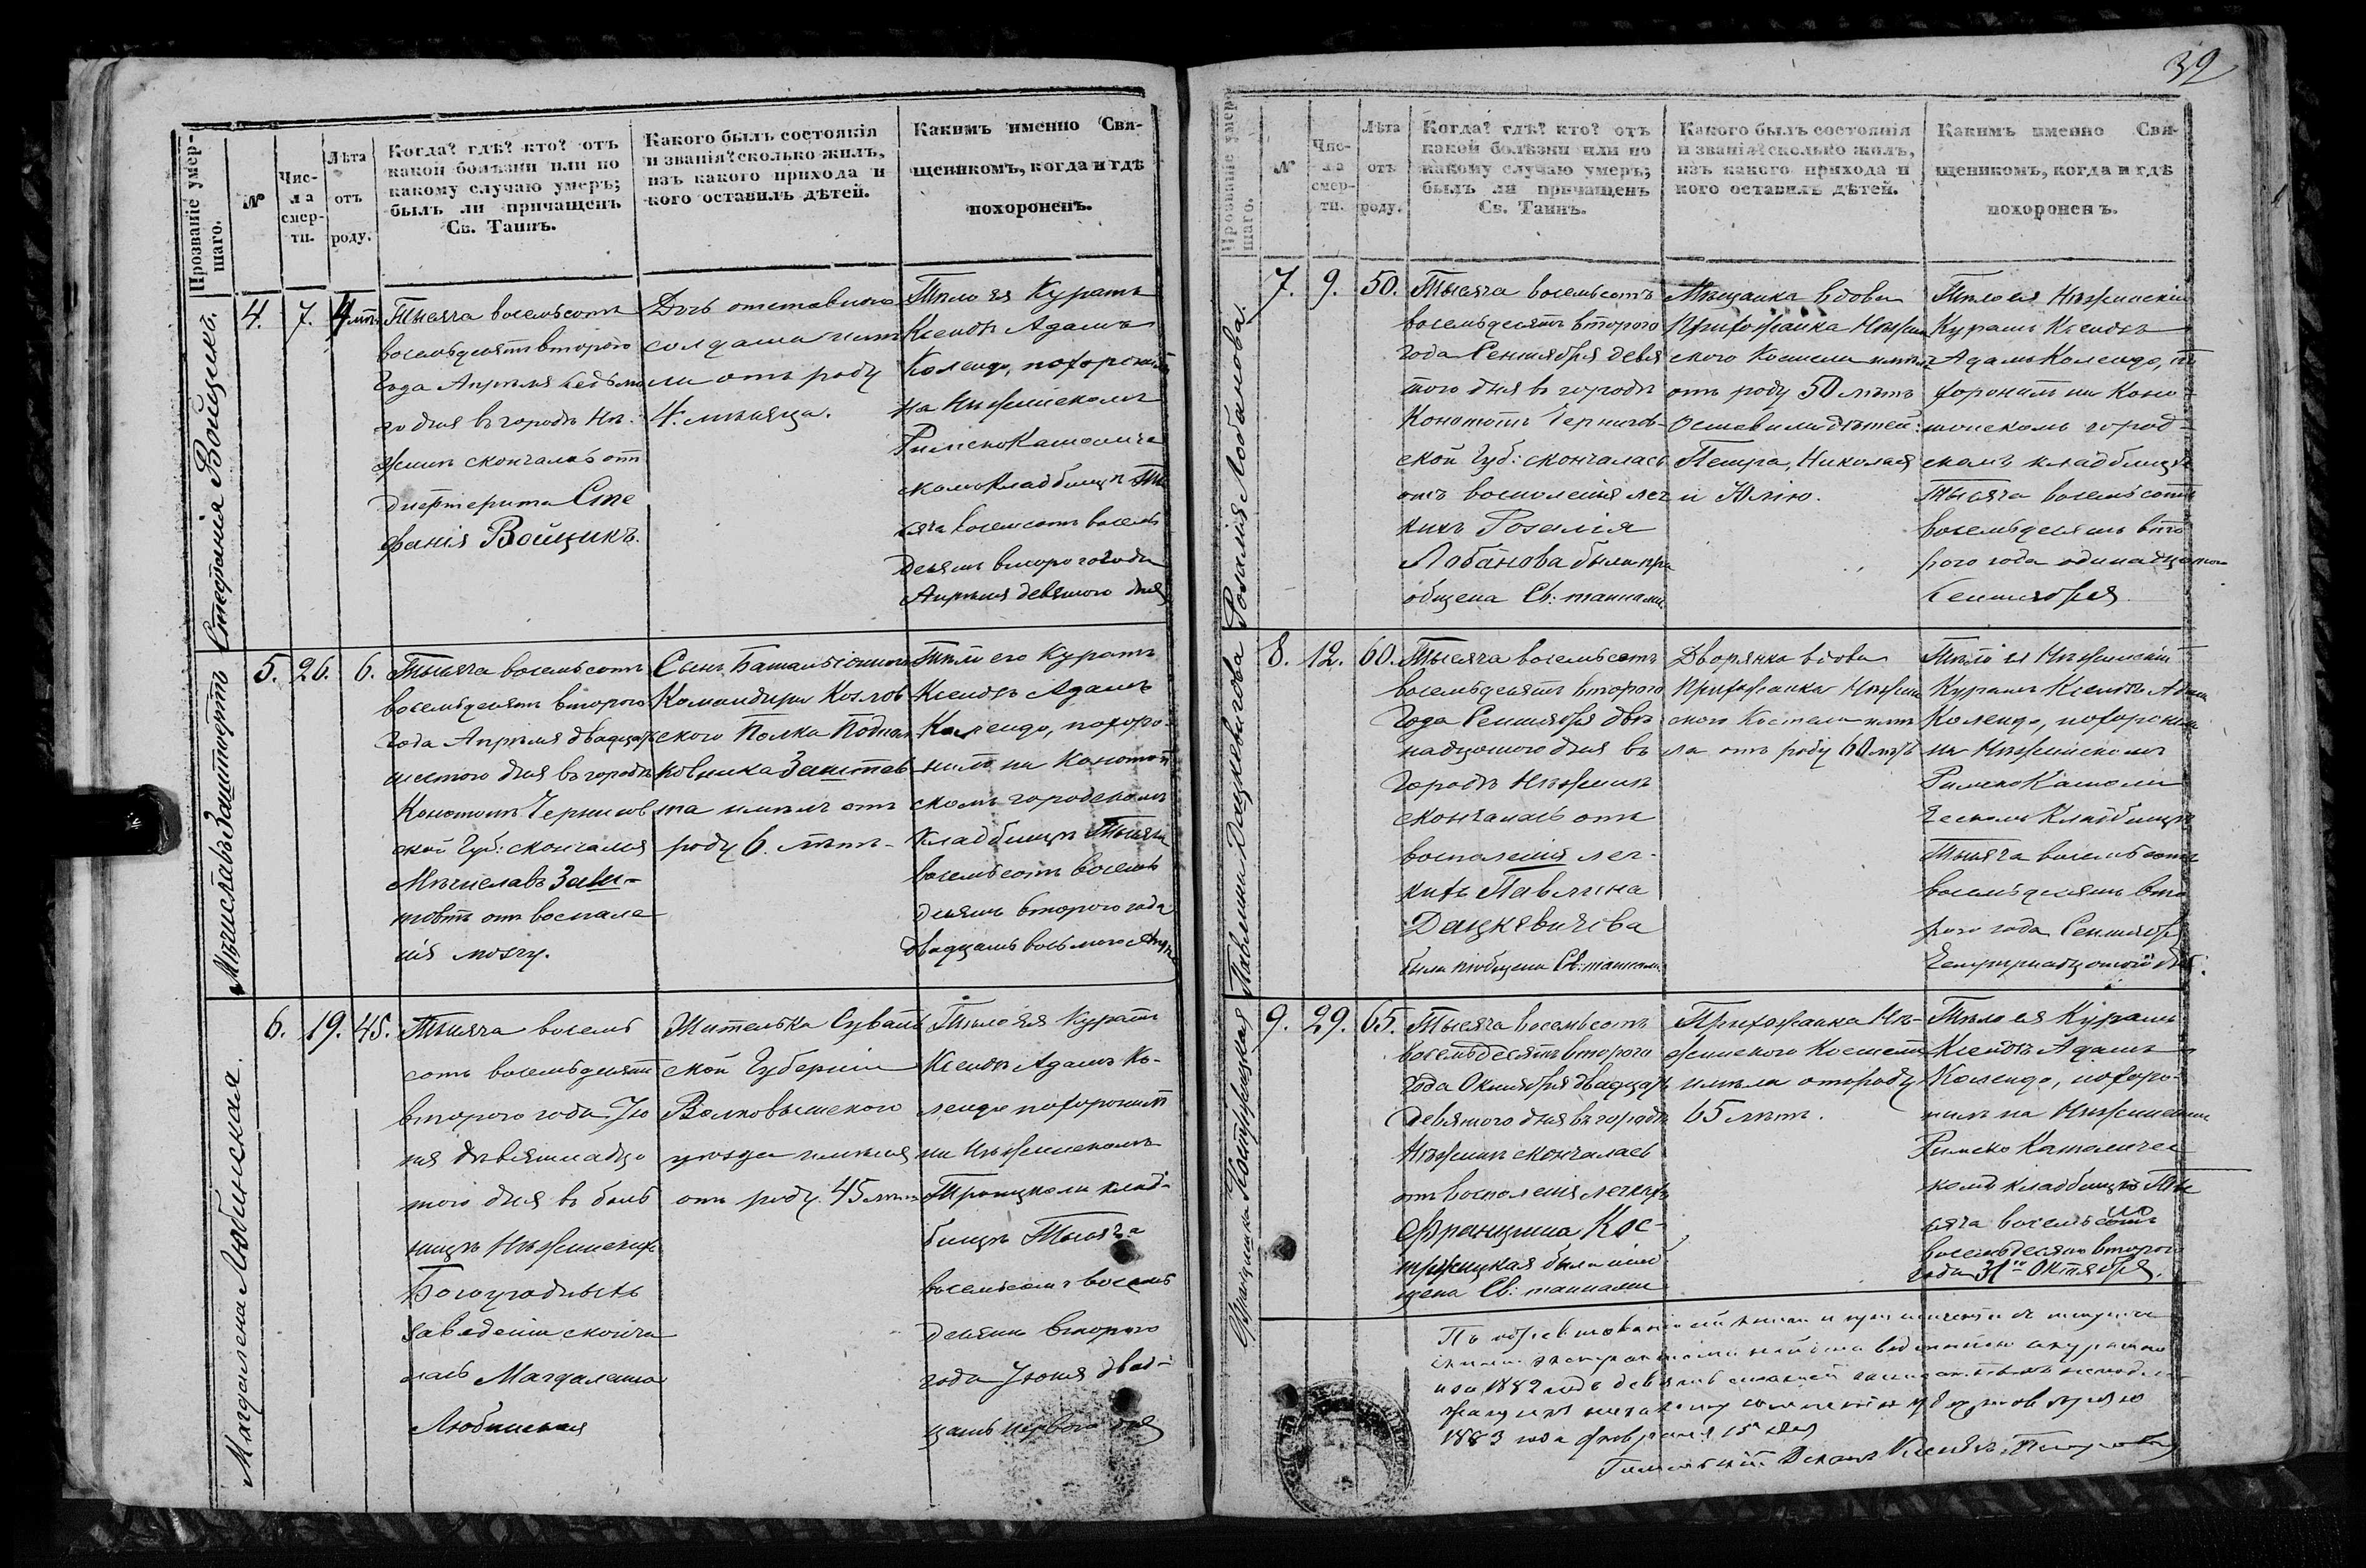 32
Прозваніе умер-
шаго.
№
Чис-
ла
смер-
ти.
Лѣта
отъ
роду.
Когда? гдѣ? кто? отъ
какой болѣзни или по
какому случаю умеръ;
былъ ли причащенъ
Св. Таинъ.
Какого былъ состоянія
и званія? сколько жилъ,
изъ какого прихода и
кого оставилъ дѣтей.
Какимъ именно Свя-
щенникомъ, когда и гдѣ
похороненъ.
Стефанія Войцикъ.
4.
7.
4 мѣ.
Тысяча восемьсотъ
восемьдесятъ второго
года Апрѣля седьма
го дня въ городѣ Нѣ-
жинѣ скончалась отъ
дифтерита Сте
фанія Войцикъ.
Дочь отставного
солдата имѣ
ла отъ роду
4. мѣсяца.
Тѣло ея Куратъ
Ксендзъ Адамъ
Колендо, похоронилъ
на Нѣжинскомъ
РимскоКатоличе
скомъ кладбищѣ Ты
сяча восемсотъ восемь
десятъ второго года
Апрѣля девятого дня
Мѣчиславъ Заштовтъ
5.
26.
6.
Тысяча восемьсотъ
восемьдесятъ второго
года Апрѣля двадцать
шестого дня въ городѣ
Конотопѣ Чернигов
ской Губ: скончался
Мѣчиславъ Заш-
товтъ отъ воспале
нія мозгу.
Сынъ Баталіоннаго
Командира Козлов
скаго Полка Подпол
ковника Заштов
та имѣлъ отъ
роду 6. лѣтъ.
Тѣло его Куратъ
Ксендзъ Адамъ
Колендо, похоро-
нилъ на Конотоп
скомъ городскомъ
кладбищѣ Тысяча
восемьсотъ восемь
десятъ второго года
двадцать восьмого Апрѣ
Магдалена Любинская.
6.
19.
45.
Тысяча восемь
сотъ восемьдесятъ
второго года Ію
ня девятнадца
того дня въ боль
ницѣ Нѣжинскихъ
Богоугодныхъ
заведеніи сконча
лась Магдалена
Любинская
Жителька Сувалк
ской Губерніи
Волковышского
уѣзда имѣла
отъ роду 45 лѣтъ
Тѣло ея Куратъ
Ксендзъ Адамъ Ко-
лендо похоронилъ
на Нѣжинскомъ
Троицкомъ клад-
бищѣ Тысяча
восемьсотъ восемь
десятъ второго
года Іюня двад-
цать первого дня
Прозваніе умер-
шаго.
№
Чис-
ла
смер-
ти.
Лѣта
отъ
роду.
Когда? гдѣ? кто? отъ
какой болѣзни или по
какому случаю умеръ;
былъ ли причащенъ
Св. Таинъ.
Какого былъ состоянія
и званія? сколько жилъ,
изъ какого прихода и
кого оставилъ дѣтей.
Какимъ именно Свя-
щенникомъ, когда и гдѣ
похороненъ.
Розалія Лобанова.
7.
9.
50.
Тысяча восемьсотъ
восемьдесятъ второго
года Сентября девя
того дня въ городѣ
Конотопѣ Чернигов-
ской Губ: скончалась
отъ воспаленія лег
кихъ Розалія
Лобанова была прі
общена Св: тайнами.
Мѣщанка вдова
Прихожанка Нѣжин
ского Костела имѣла
отъ роду 50 лѣтъ
Оставила дѣтей:
Петра, Николая
и Юлію.
Тѣло ея Нѣжинскій
Куратъ Ксендзъ
Адамъ Колендо, по
хоронилъ на Коно-
топскомъ город-
скомъ кладбищѣ
Тысяча восемьсотъ
восемьдесятъ вто
рого года одинадцатого
Сентября
Павлина Дацкевичова
8.
12.
60.
Тысяча восемьсотъ
восемьдесятъ второго
года Сентября две
надцатого дня въ
городѣ Нѣжинѣ
скончалась отъ
воспаленія лег-
кихъ Павлина
Дацкевичева
была пріобщена Св: тайнами
Дворянка вдова
Прихожанка Нѣжин
ского Костела имѣ
ла отъ роду 60 лѣтъ
Тѣло ея Нѣжинскій
Куратъ Ксендзъ Адамъ
Колендо, похоронилъ
на Нѣжинскомъ
РимскоКатоли
ческомъ Кладбищѣ
Тысяча восемьсотъ
восемьдесятъ вто
рого года Сентября
Четырнадцатого дня.
Францишка Костржицкая
9.
29.
65.
Тысяча восемьсотъ
восемьдесятъ второго
года Октября двадцать
девятого дня въ городѣ
Нѣжинѣ скончалась
отъ воспаленія легкихъ
Францишка Кос-
тржицкая была пріоб
щена Св: тайнами
Прихожанка Нѣ-
жинского Костела
имѣла отъ роду
65 лѣтъ.
Тѣло ея Куратъ
Ксендзъ Адамъ
Колендо, похоро-
нилъ на Нѣжинскомъ
Римско Католичес
комъ кладбищѣ Ты
сяча восемьсотъ
восемьдесятъ второго
года 31го Октября.
1882
1883 года февраля 15 дня
Деканъ Ксендзъ